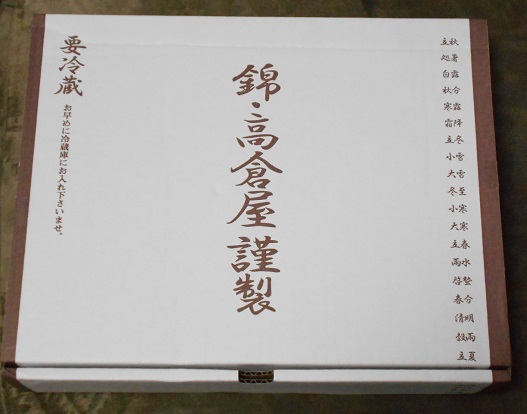 立秋
処暑
白露
秋分
寒露
霜降
立冬
小雪
大雪
冬至
小寒
大寒
立春
雨水
啓蟄
春分
清明
穀雨
立夏
錦・高倉屋謹製
要冷蔵
お早めに冷蔵庫にお入れ下さいませ。